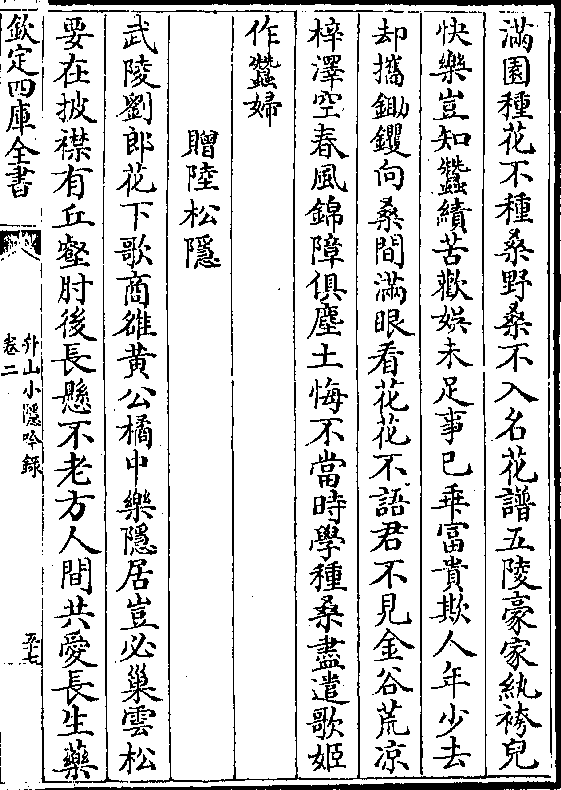 滿園種花不種桑野桑不入名花譜五陵豪家紈袴兒
快樂豈知蠶績苦歡娯未足事已乖富貴欺人年少去
却攜鋤钁向桑間滿眼看花花不語君不見金谷荒凉
梓澤空春風錦障俱塵土悔不當時學種桑盡遣歌姬
作蠶婦
贈陸松隱
武陵劉郎花下歌商雒黃公橘中樂隱居豈必巢雲松
要在披襟有丘壑肘後長懸不老方人間共愛長生藥
欽定四庫全書
外山小隱吟録
卷二
五十七